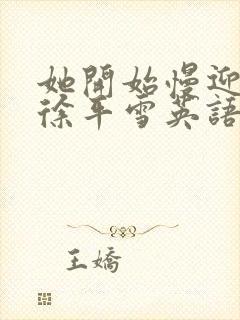 她開始慢迎
徐平雪英語
王嬌